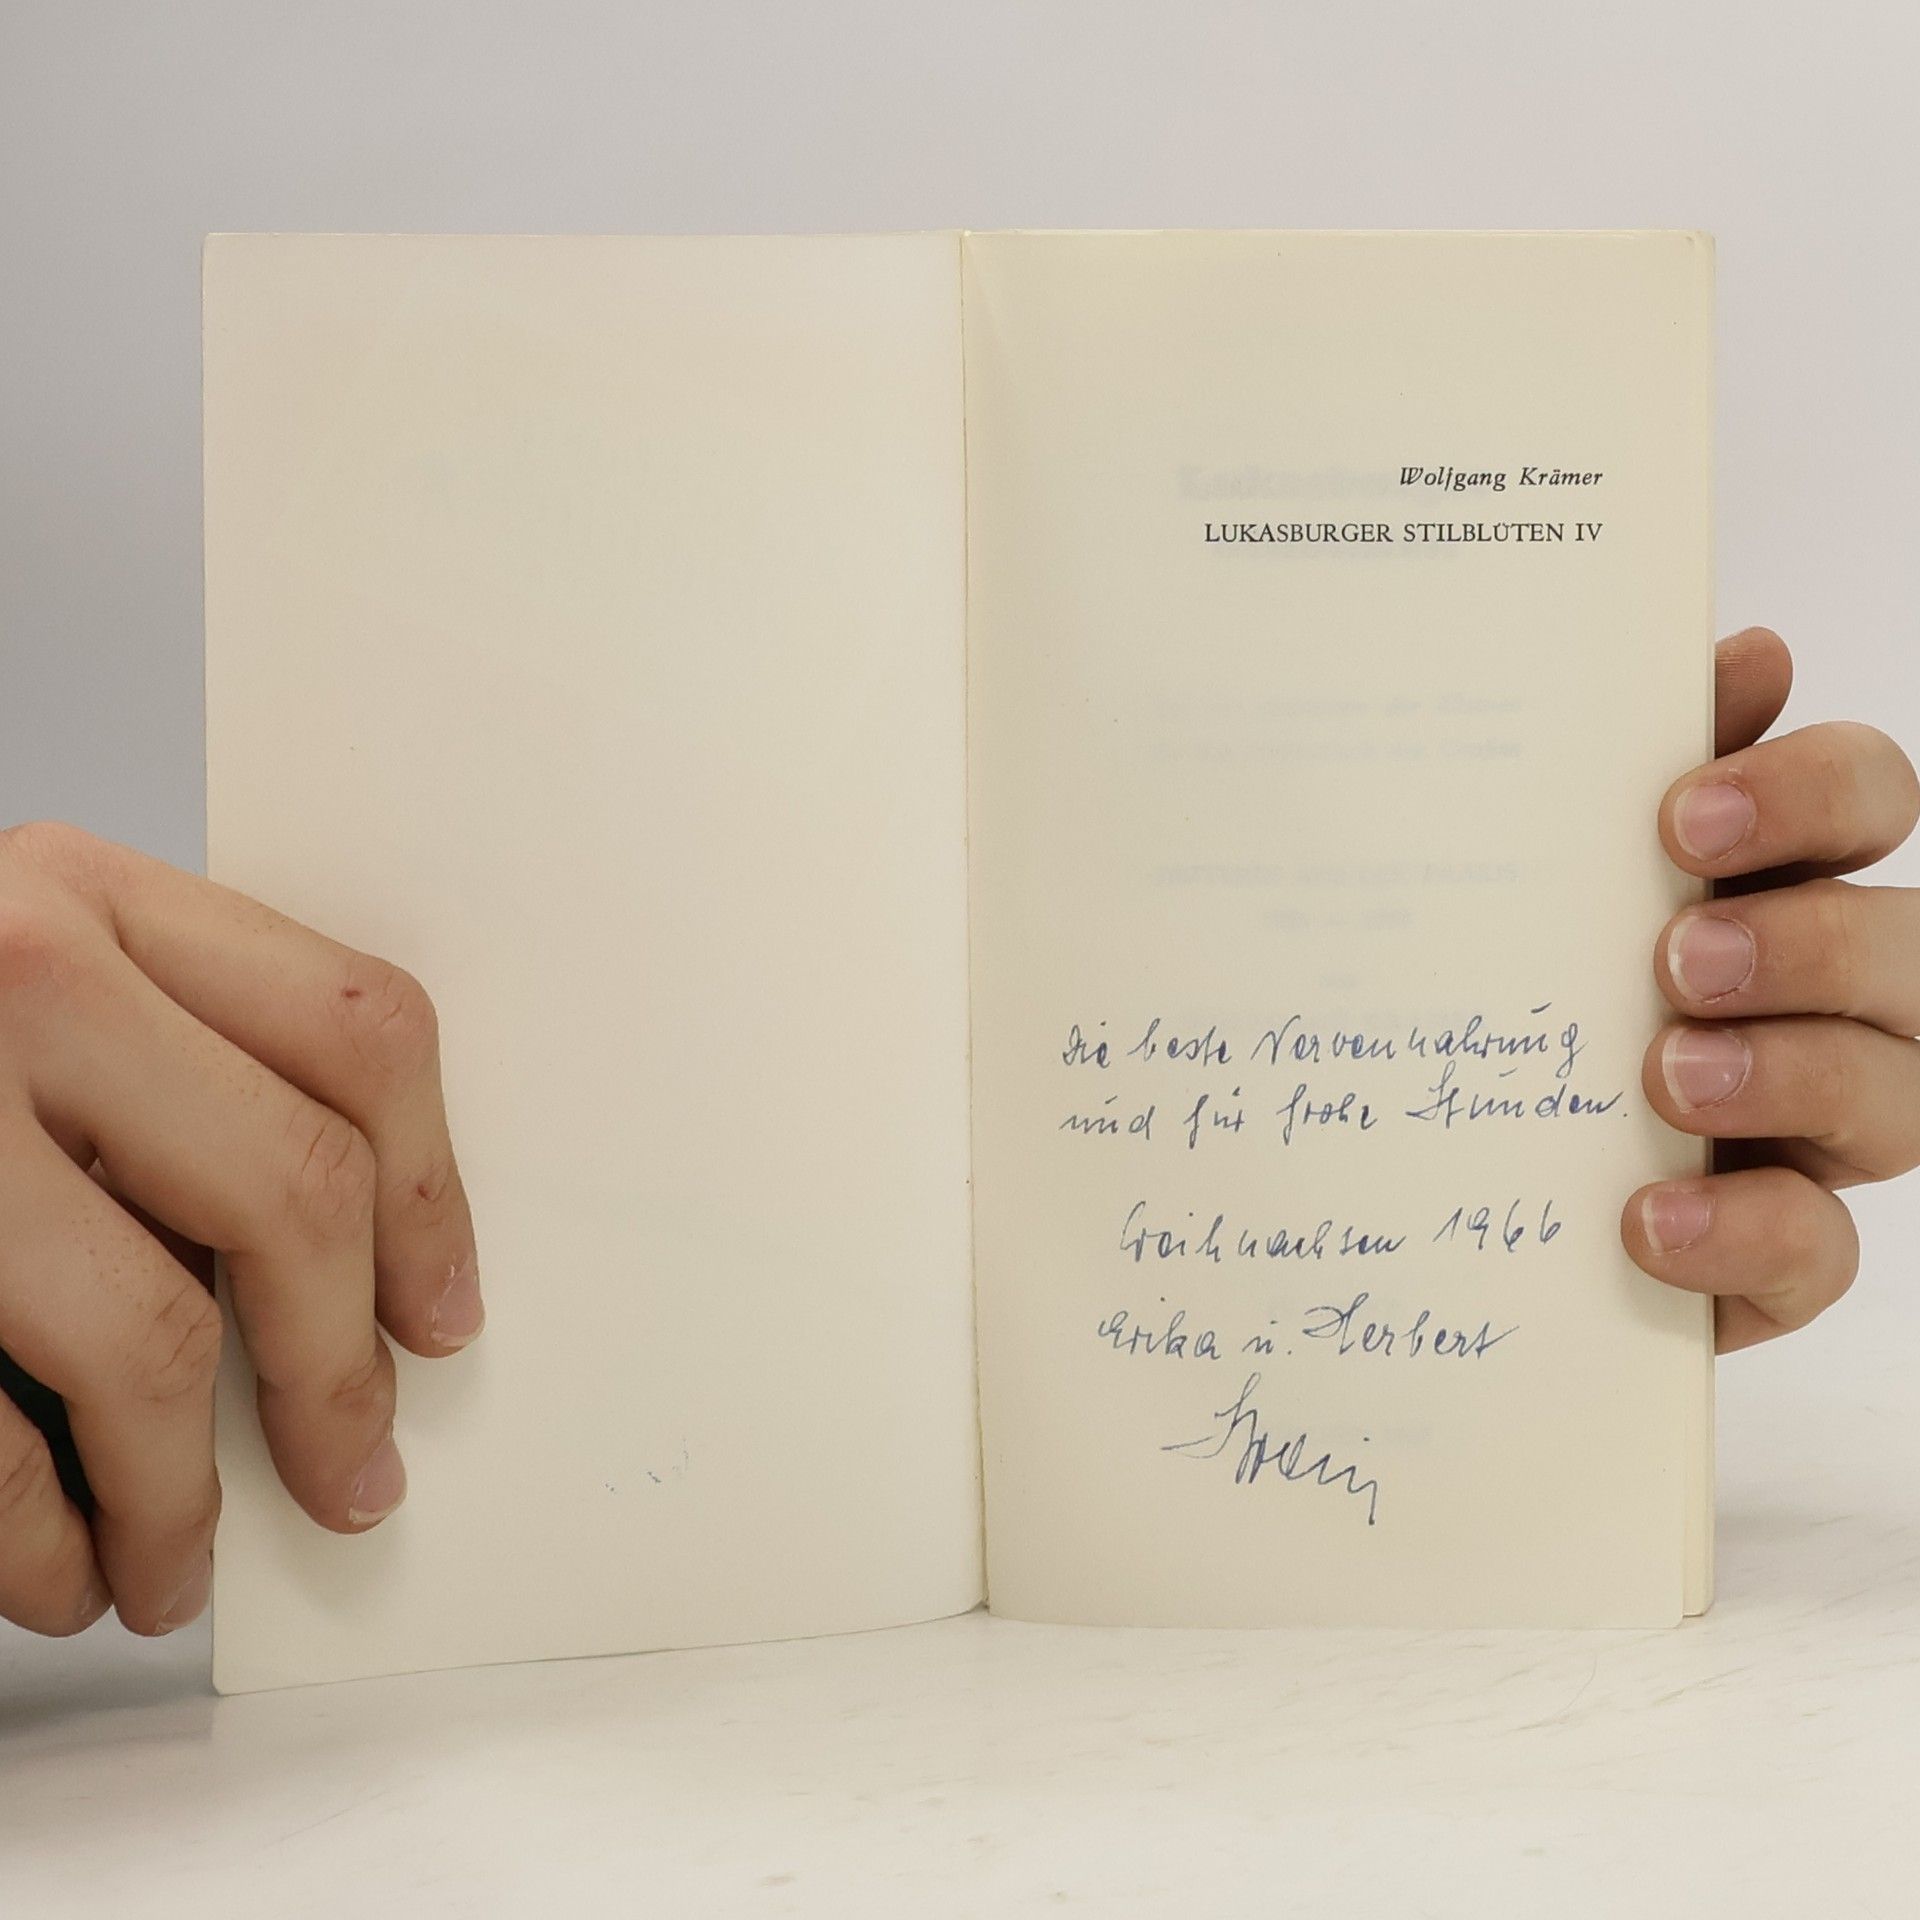 Wolfgang Krämer
LUKASBURGER STILBLÜTEN IV
Die beste Nervennahrung
und für frohe Stunden.
Weihnachten 1966
Erika u. Herbert